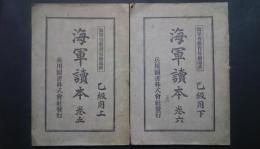 海軍讀本 卷五
乙級用上
兵用圖書株式會社發行
海軍讀本 卷六
乙級用下
兵用圖書株式會社發行